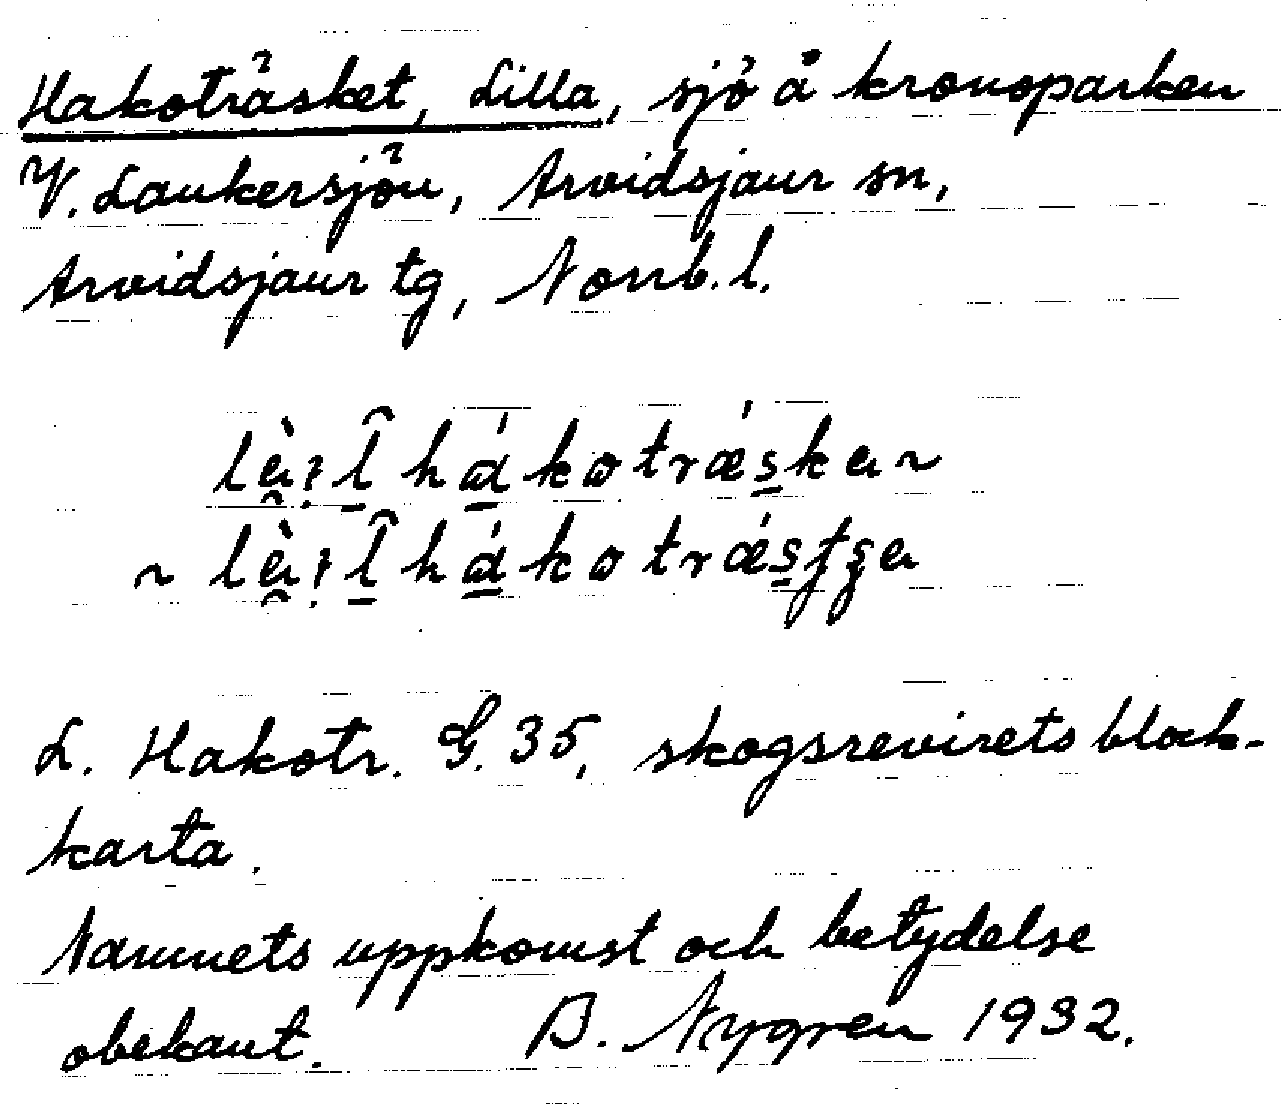 Hakoträsket, Lilla, sjö å kronoparken
V. Laukersjön, Arvidsjaur sn,
Arvidsjaur tg, Norrb. l.
L. Hakotr. G. 35, skogsrevirets block-
karta.
Namnets uppkomst och betydelse
obekant. B. Nygren 1932.